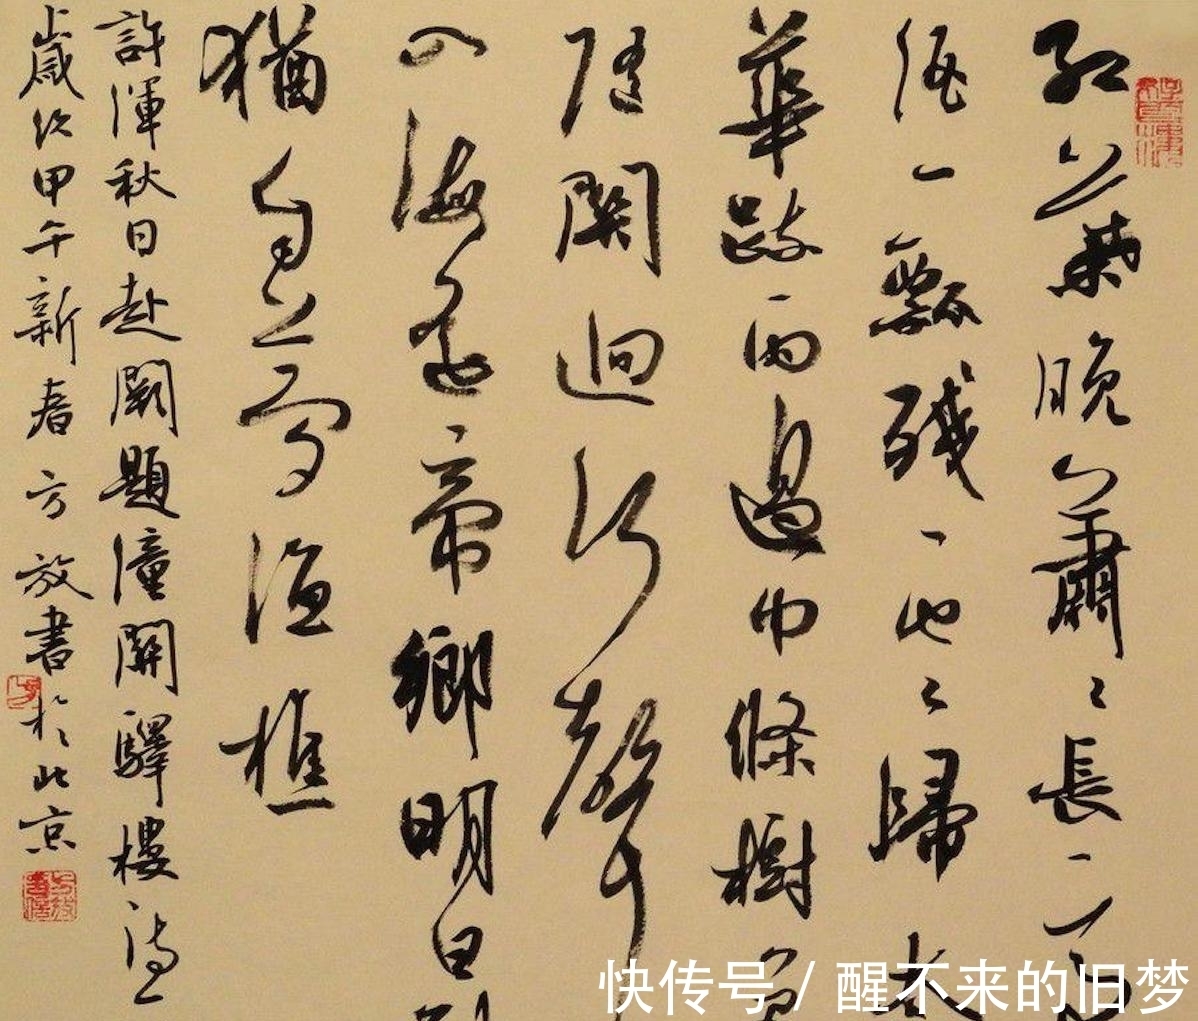 紅葉晚蕭蕭長亭
酒一瓢殘雲歸太
華疏雨過中條樹色
隨關迥河聲
入海遥帝鄉明日到
猶自夢漁樵
許渾秋日赴闕題潼關驛樓詩
歲次甲午新春方放書於北京
快传号 / 醒不来的旧梦